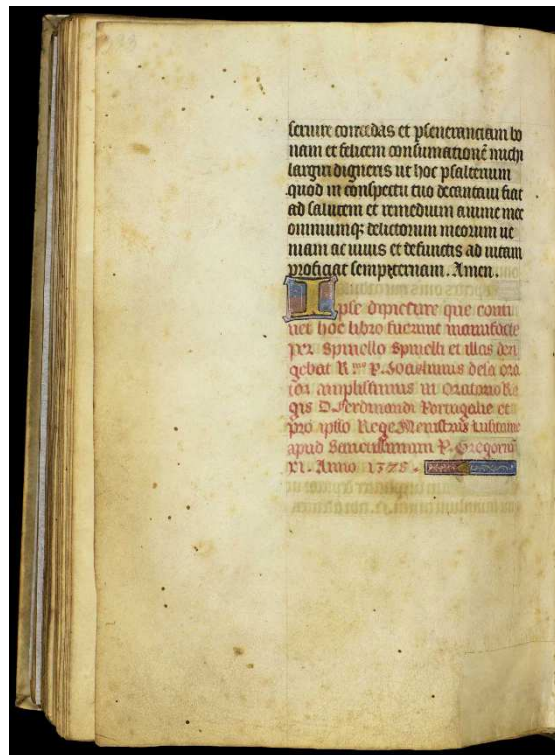 seruire concedas et pseuerantiam bo
nam et felicem consumationē michi
largiri digneris ut hoc psalterium
quod in conspectu tuo decantaui fiat
ad salutem et remedium anime mee
omniumq; delictorum meorum ue
niam ac uiuis et defunctis ad uitam
proficiat sempiternam. Amen.
Ipse dipicture que conti
net hoc libro fuerunt manufacte
per Spinello Spinelli et illas deri
gebat R.mus P. Joachinus dela
amplissimus in Oratorio Re
gis D. Ferdinandi Portugalie et
pro ipso Rege Menistrus Lusitanie
apud Sanctissimum P. Gregoriū
XI. Anno 1378.